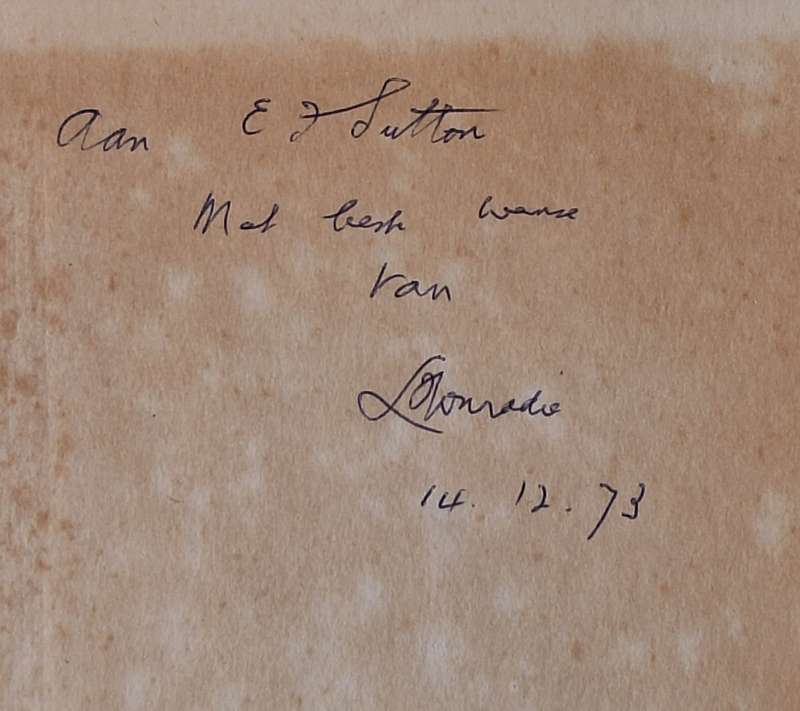 Aan E F Sutton
Met beste wense
van
L Conradie
14. 12. 73